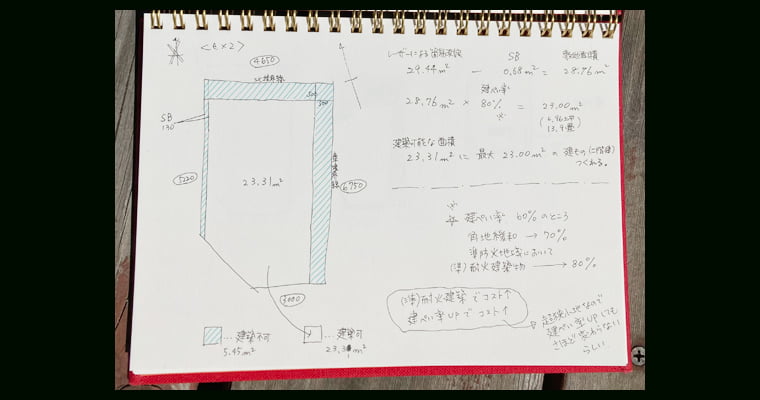 <EX2>
4650
北境界線
500
300
SB
130
5220
23.31m²
6750
3000
…建築不可
5.45m²
…建築可
レーザーによる
SB
敷地面積
29.44m² − 0.68m² = 28.76m²
建ぺい率
28.76m² × 80% = 23.00m²
※
(6.96土坪
13.9畳)
建築可能な面積
23.31m² に 最大 23.00m² の 建もの(1階建)
つくれる。
※
建ぺい率 60%のところ
角地緩和 → 70%
準防火地域において
(準)耐火建築物 → 80%
(準)耐火建築でコスト↑
建ぺい率UPでコスト↑
超狭小地なので
建ぺい率UPしても
さほど変わらない
らしい